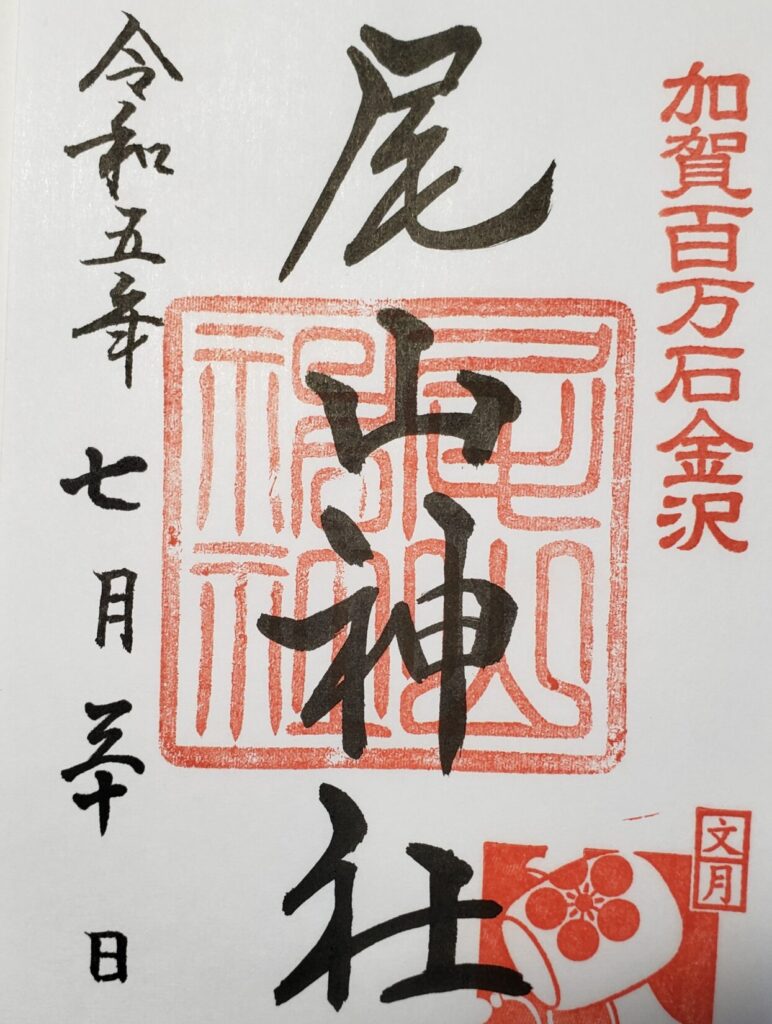 加賀百万石金沢
尾山神社
令和五年 七月三十日
文月